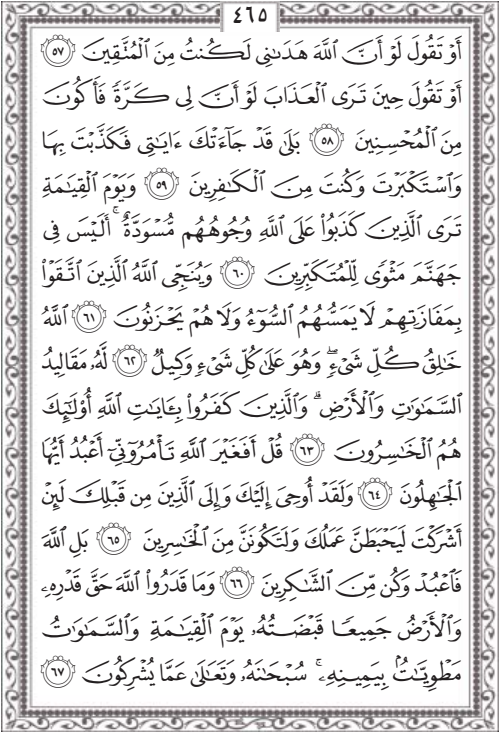 ٤٦٥
أَوْ تَقُولَ لَوْ أَنَّ ٱللَّهَ هَدَىٰنِى لَكُنتُ مِنَ ٱلْمُتَّقِينَ ٥٧
أَوْ تَقُولَ حِينَ تَرَى ٱلْعَذَابَ لَوْ أَنَّ لِى كَرَّةً فَأَكُونَ
مِنَ ٱلْمُحْسِنِينَ ٥٨ بَلَىٰ قَدْ جَآءَتْكَ ءَايَـٰتِى فَكَذَّبْتَ بِهَا
وَٱسْتَكْبَرْتَ وَكُنتَ مِنَ ٱلْكَـٰفِرِينَ ٥٩ وَيَوْمَ ٱلْقِيَـٰمَةِ
تَرَى ٱلَّذِينَ كَذَبُوا۟ عَلَى ٱللَّهِ وُجُوهُهُم مُّسْوَدَّةٌ ۚ أَلَيْسَ فِى
جَهَنَّمَ مَثْوًى لِّلْمُتَكَبِّرِينَ ٦٠ وَيُنَجِّى ٱللَّهُ ٱلَّذِينَ ٱتَّقَوْا۟
بِمَفَازَتِهِمْ لَا يَمَسُّهُمُ ٱلسُّوٓءُ وَلَا هُمْ يَحْزَنُونَ ٦١ ٱللَّهُ
خَـٰلِقُ كُلِّ شَىْءٍ ۖ وَهُوَ عَلَىٰ كُلِّ شَىْءٍ وَكِيلٌ ٦٢ لَّهُۥ مَقَالِيدُ
ٱلسَّمَـٰوَٰتِ وَٱلْأَرْضِ ۗ وَٱلَّذِينَ كَفَرُوا۟ بِـَٔايَـٰتِ ٱللَّهِ أُو۟لَـٰٓئِكَ
هُمُ ٱلْخَـٰسِرُونَ ٦٣ قُلْ أَفَغَيْرَ ٱللَّهِ تَأْمُرُوٓنِّىٓ أَعْبُدُ أَيُّهَا
ٱلْجَـٰهِلُونَ ٦٤ وَلَقَدْ أُوحِىَ إِلَيْكَ وَإِلَى ٱلَّذِينَ مِن قَبْلِكَ لَئِنْ
أَشْرَكْتَ لَيَحْبَطَنَّ عَمَلُكَ وَلَتَكُونَنَّ مِنَ ٱلْخَـٰسِرِينَ ٦٥ بَلِ ٱللَّهَ
فَٱعْبُدْ وَكُن مِّنَ ٱلشَّـٰكِرِينَ ٦٦ وَمَا قَدَرُوا۟ ٱللَّهَ حَقَّ قَدْرِهِۦ
وَٱلْأَرْضُ جَمِيعًا قَبْضَتُهُۥ يَوْمَ ٱلْقِيَـٰمَةِ وَٱلسَّمَـٰوَٰتُ
مَطْوِيَّـٰتٌۢ بِيَمِينِهِۦ ۚ سُبْحَـٰنَهُۥ وَتَعَـٰلَىٰ عَمَّا يُشْرِكُونَ ٦٧